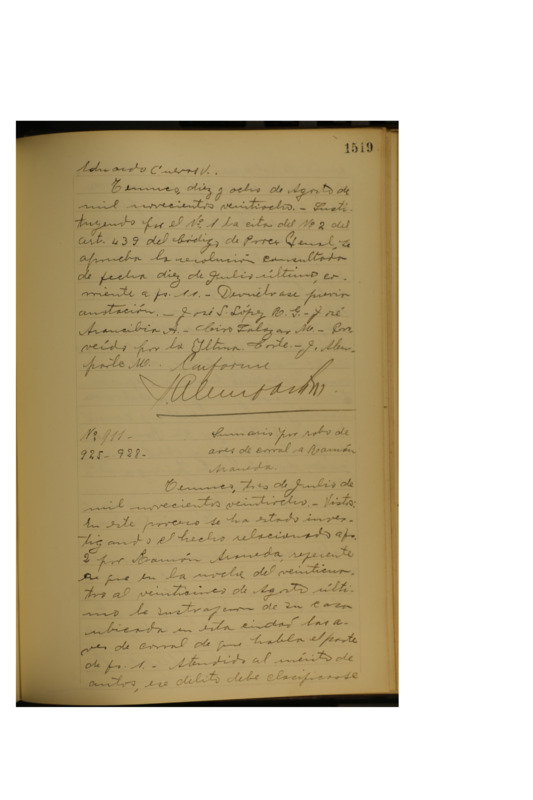 1519
Eduardo Cuevas V..
Temuco, diez y ocho de Agosto de
mil novecientos veintiocho. - Susti-
tuyendo por el Nº 1 la cita del Nº 2 del
art. 439 del Código de Proc. Penal, se
aprueba la resolución consultada
de fecha diez de Julio último, co-
rriente a fs. 11. - Devuélvase previa
anotación. - José S. López M. G. - José
Arancibia A. - Ciro Salazar M. - Pro-
veído por la Iltma. Corte. - J. Mon-
Conforme
Nº 911 -
925 - 928 -
Sumario por robo de
aves de corral a Ramón
Araneda.
Temuco, tres de Julio de
mil novecientos veintiocho. - Vistos:
En este proceso se ha estado inves-
tigando el hecho relacionado a fs.
2 por Ramón Araneda referente
a que en la noche del veinticua-
tro al veinticinco de Agosto últi-
mo le sustrajeron de su casa
ubicada en esta ciudad las a-
ves de corral de que habla el parte
de fs. 1. - Atendido al mérito de
autos, ese delito debe clasificarse